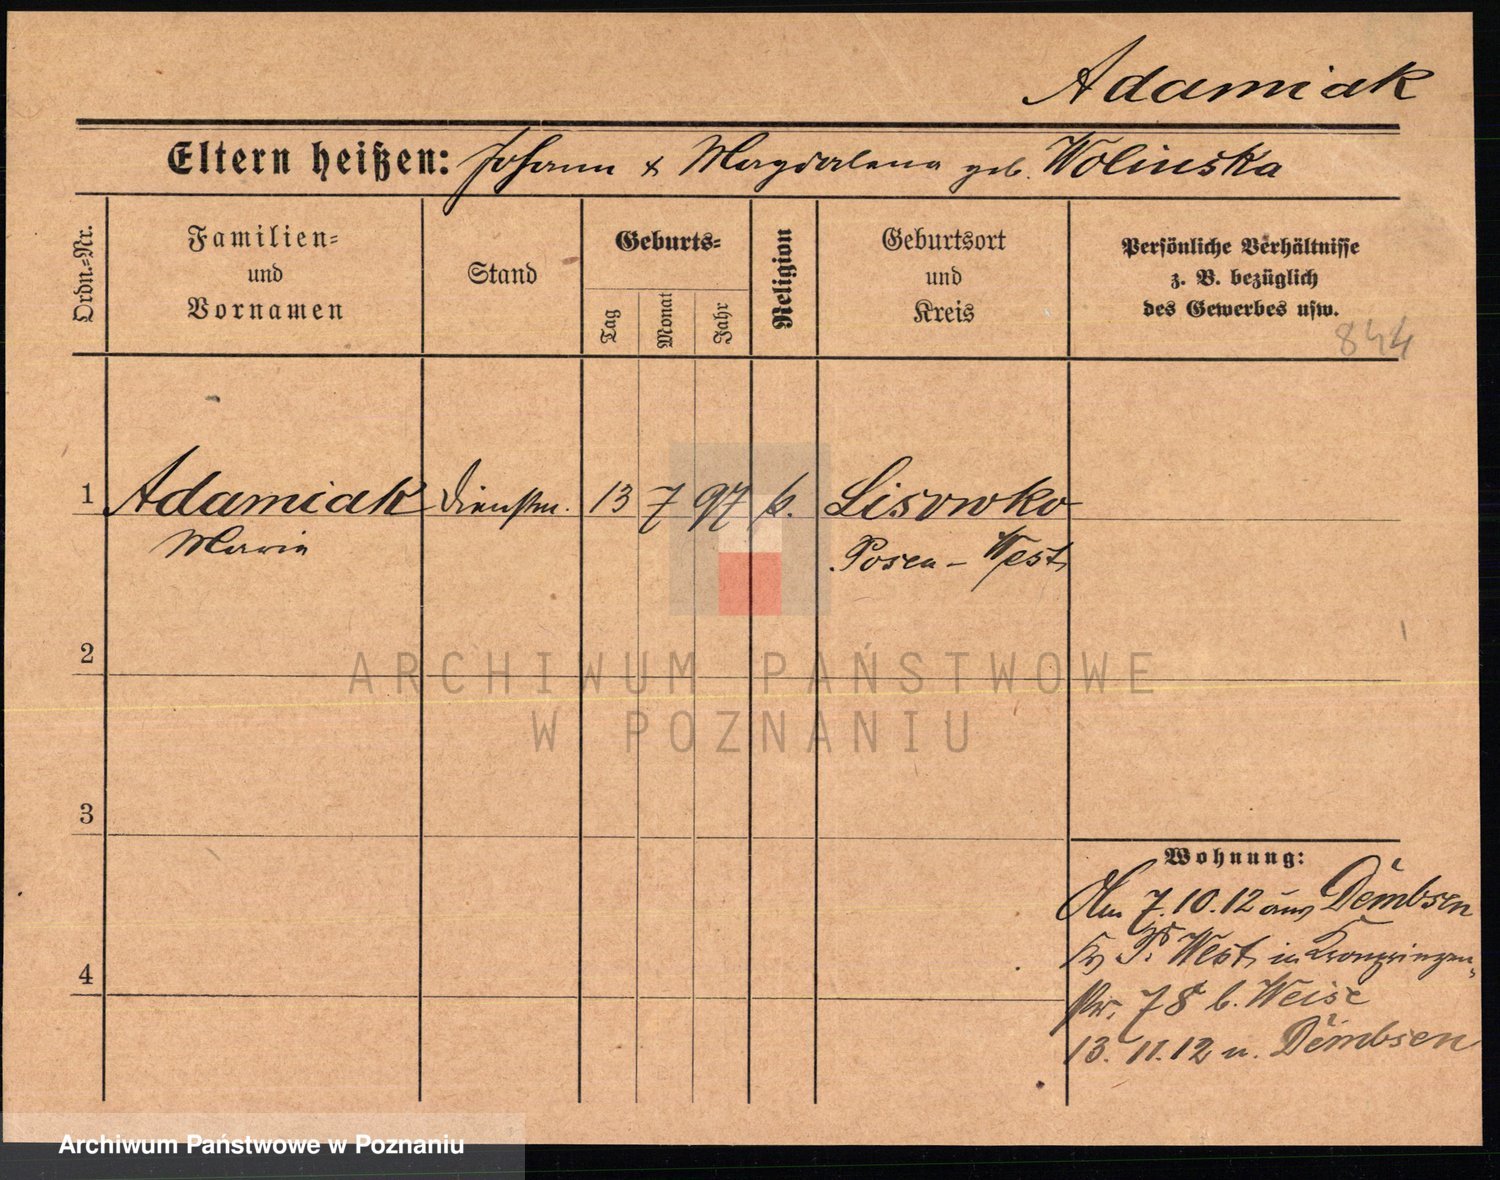 Adamiak
Eltern heißen: Johann & Magdalena geb. Wolinska
Ordn.=Nr.
Familien=
und
Vornamen
Stand
Geburts=
Tag
Monat
Jahr
Religion
Geburtsort
und
Kreis
Persönliche Verhältnisse
z. B. bezüglich
des Gewerbes usw.
844
1 Adamiak Dienstm. 13 7 97 k. Lisowko
Marie Posen - West
2
3
4
Wohnung:
Am 7.10.12 aus Dembsen
Kr. P. West, in Kronprinzen-
str. 78 b. Weise
13. 11. 12 n. Dembsen
ARCHIWUM PAŃSTWOWE
W POZNANIU
Archiwum Państwowe w Poznaniu